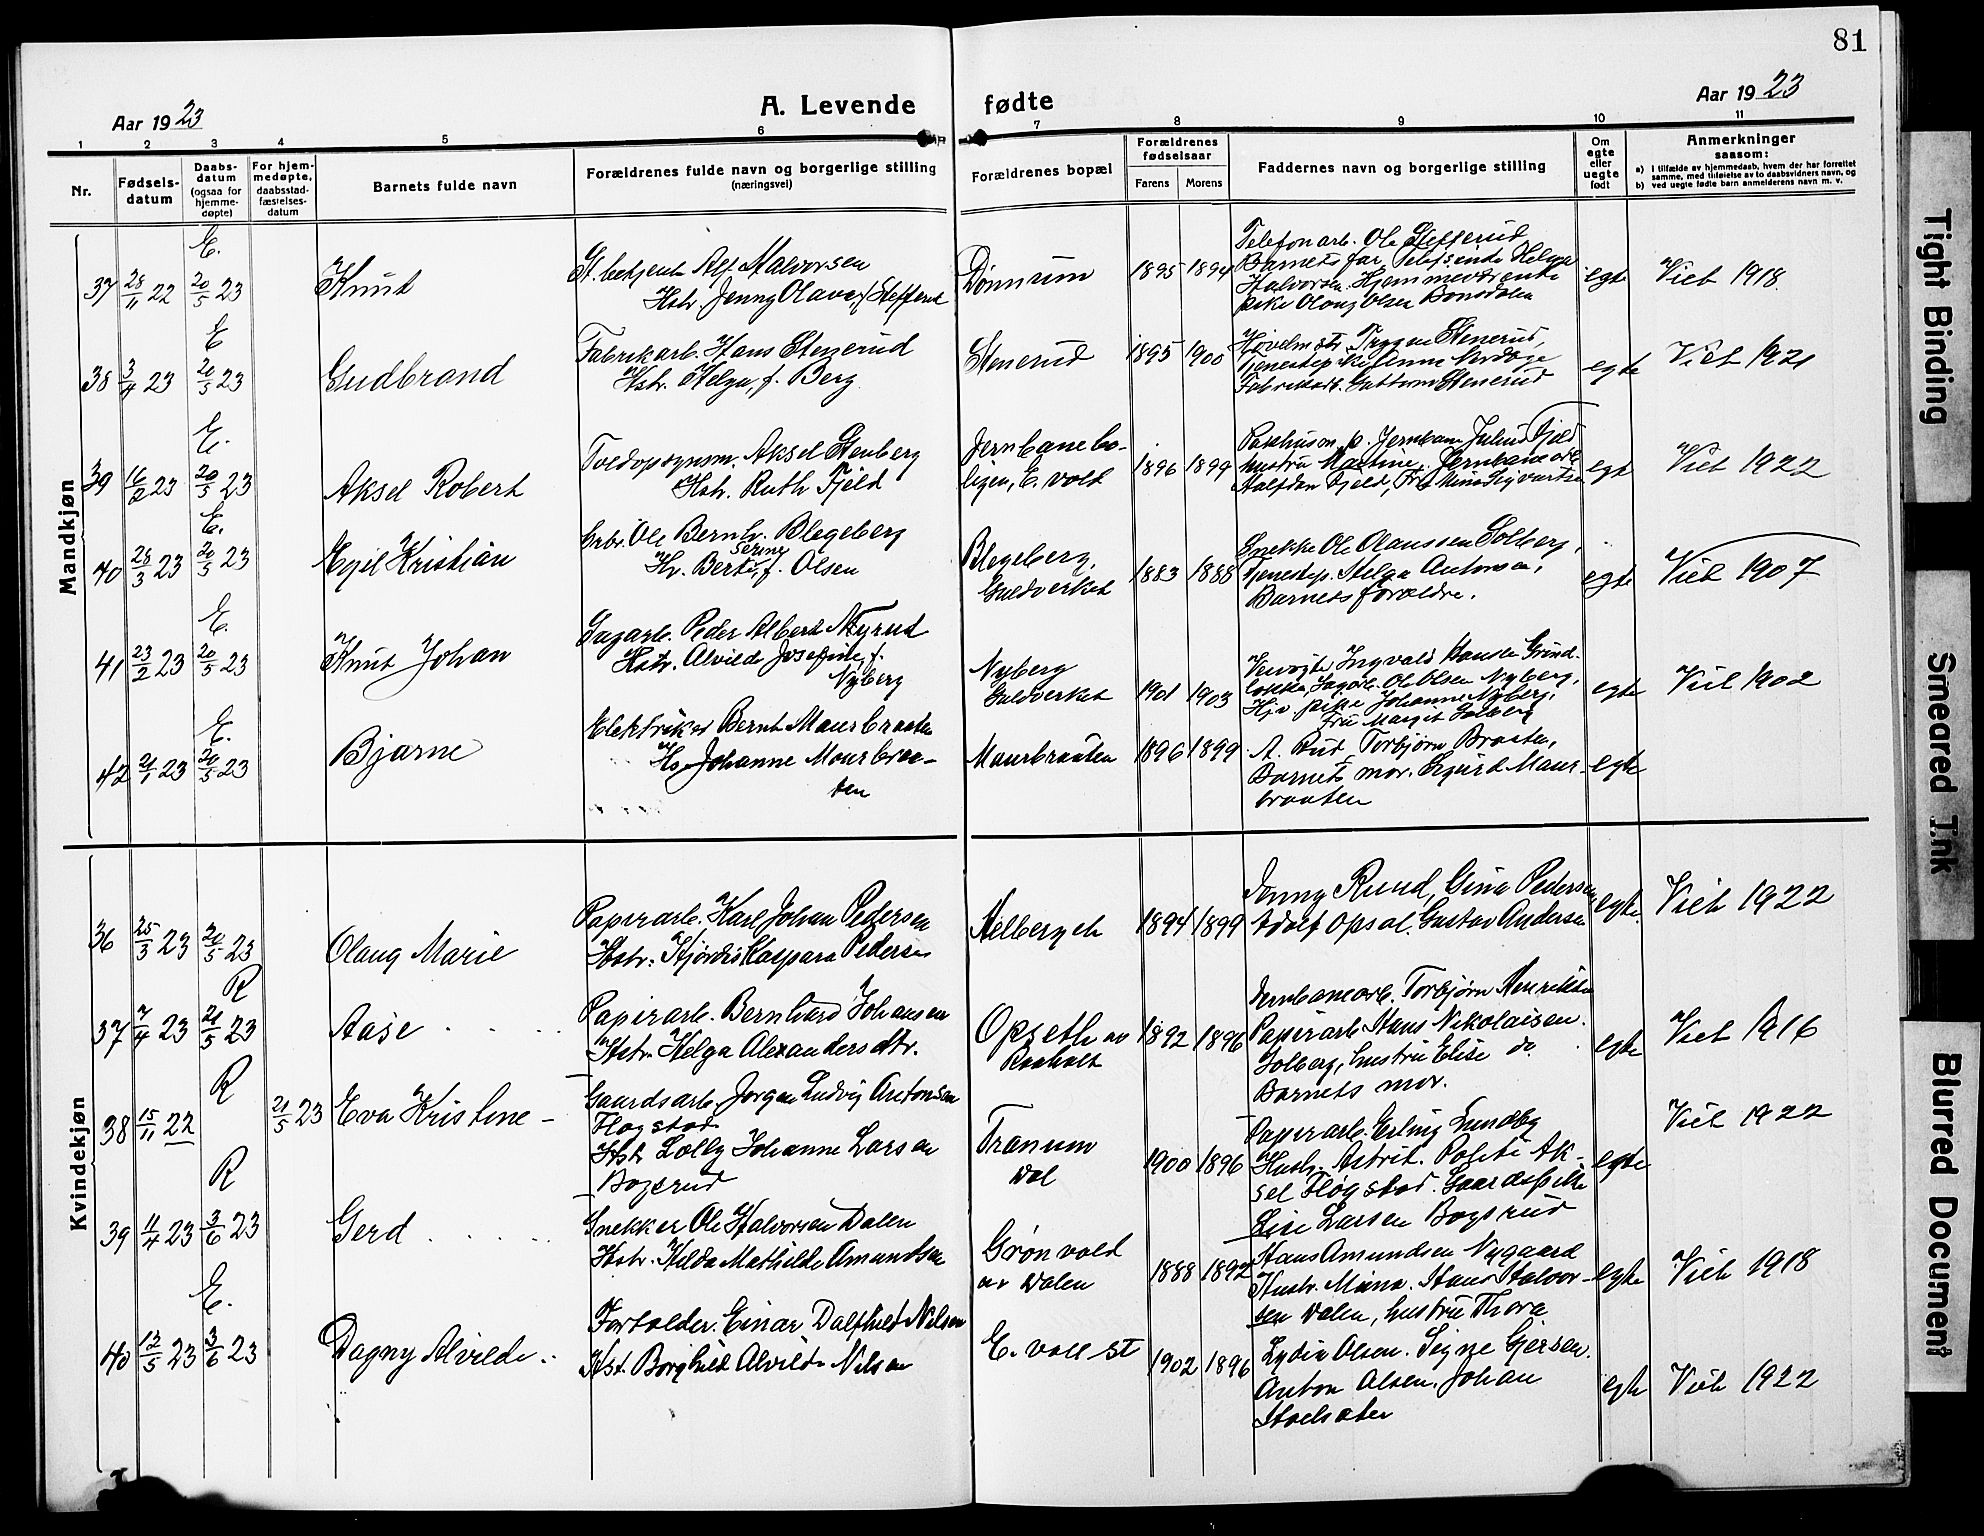 81
Aar 1923
A. Levende fødte
Aar 1923
1 2 3 4 5 6 7 8 9 10 11
Nr.
Fødsels-
datum
Daabs-
datum
(ogsaa for
hjemme-
døpte)
For hjem-
medøpte,
daabsstad-
fæstelses-
datum
Barnets fulde navn
Forældrenes fulde navn og borgerlige stilling
(næringsvei)
Forældrenes bopæl
Forældrenes
fødselsaar
Farens Morens
Faddernes navn og borgerlige stilling
Om
egte
eller
uegte
født
Anmerkninger
saasom:
a) I tilfælde av hjemmedaab, hvem der har forrettet
samme, med tilføielse av to daabsvidners navn, og
b) ved uegte fødte barn anmelderens navn m. v.
Mandkjøn
E.
37 28/11 22 20/5 23 Knut
St. betjent Alf Halvorsen
Hstr. Jenny Olava, f. Stefferud
Dønnum 1895 1894
Telefonarb. Ole Stefferud
Barnets far, Helga
Halvorsen. Hjemmeværende
pike Olaug Olsen Bonsdalen
egte Viet 1918.
E
38 3/4 23 20/5 23 Gudbrand
Fabrikarb. Hans Stenerud
Hstr. Helga, f. Berg.
Stenerud 1895 1900
Høvelmstr. Trygve Stenerud,
Tjenestepike Anna
Fabrikarb. Guttorm Stenerud
egte Viet 1921
E.
39 16/2 23 20/5 23 Aksel Robert
Toldopsynm. Aksel Stenberg
Hstr. Ruth Fjeld
Jernbanebo-
ligen, E. vold 1896 1899
Pakhusm. p. Jernbanen Julius Fjeld
hustru Martine, Jernbanearb.
Halfdan Fjeld, Frk Mina Sigvartsen
egte Viet 1922
E.
40 28/3 23 20/5 23 Egil Kristian
Arb. Ole Bernh. Blegeberg
Serine
H. Berte, f. Olsen
Blegeberg,
Guldverket 1883 1888
Snekker Ole Olaussen Solberg,
Tjenestep. Helga Antonsen,
Barnets forældre.
egte Viet 1907
E.
41 23/2 23 20/5 23 Knut Johan
Sagarb. Peder Albert Myrud
Hstr. Alvilde Josefine, f.
Nyberg
Nyberg
Guldverket 1901 1903
Ingvald Hansen Grind-
løkken, Sagarb. Ole Olsen Nyberg,
Hjv. pike Johanne Nyberg,
Fru Margit Solberg
egte Viet 1902
E.
42 21/1 23 20/5 23 Bjarne
Elektriker Bernt Maurbraaten
Hs. Johanne Maurbraa-
ten
Maurbraaten 1896 1899
A. Rud, Torbjørn Braaten,
Barnets mor. Sigurd Maur-
braaten
egte
Kvindekjøn
36 25/3 23 20/5 23 Olaug Marie
Papirarb. Karl Johan Pedersen
Hstr. Hjørdis Kaspara Pedersen
1894 1899
Jonny Ruud, Gina Pedersen
Adolf Opsal. Gustav Andersen
egte. Viet 1922
R
37 7/4 23 21/5 23 Aase . . . .
Papirarb. Bernhard Johansen
Hstr. Helga Alexandersdtr.
Opseth av
Raaholt 1892 1896
Jernbanearb. Torbjørn Henriksen
Papirarb. Hans Nikolaisen.
Solberg, hustru Elise do.
Barnets mor.
egte Viet 1916
R
38 15/11 22 21/5 23 Eva Kristine -
Gaardsarb. Jørgen Ludvig Antonsen
Flogstad
Hstr Lolly Johanne Larsen
Bogerud
Tranum
Dal 1900 1896
Papirarb. Erling Lundby
Hustr. Astrid. Politi Ak-
sel Flogstad. Gaardspike
Lise Larsen Bogsrud
egte Viet 1922
R
39 11/4 23 3/6 23 Gerd . . . . .
Snekker Ole Halvorsen Dalen
Hstr. Hilda Mathilde Amundsen
Grønvold
av Dalen 1888 1892
Hans Amundsen Nygaard
Hustr. Mina. Hans Halvor-
sen Dalen, hustru Thora
egte Viet 1918
E.
40 12/5 23 3/6 23 Dagny Alvilde . .
Forvalder. Einar Nilsen
Hst. Borghild Alvilde Nilsen
E. voll st 1902 1896
Lydia Olsen. Signe Gjersen.
Anton Olsen. Johan
egte Viet 1922
Tight Binding
Smeared Ink
Blurred Document